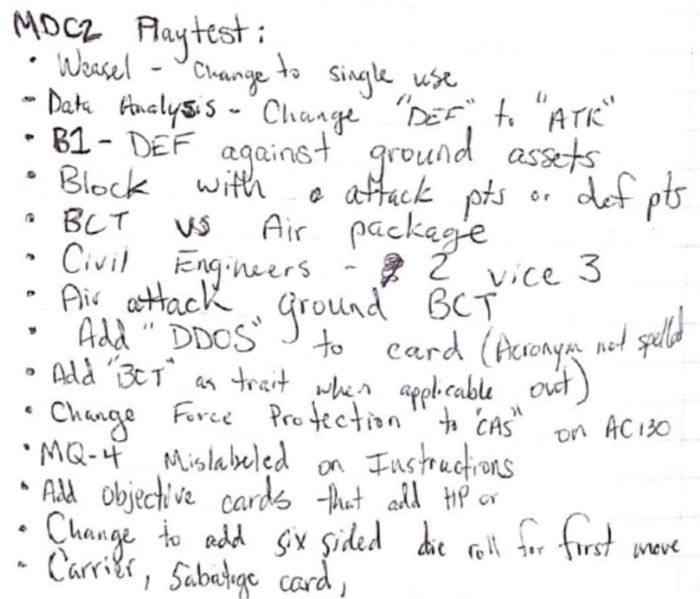 MDC2 Playtest:
• Weasel - Change to single use
- Data Analysis - Change "DEF" to "ATK"
• B1 - DEF against ground assets
• Block with attack pts or def pts
• BCT vs Air package
• Civil Engineers - 2 vice 3
• Air attack ground BCT
• Add "DDOS" to card (Acronym not spelled
• Add "BCT" as trait when applicable out)
• Change Force Protection to "CAS" on AC130
• MQ-4 Mislabeled on Instructions
• Add objective cards that add HP or
• Change to add six sided die roll for first move
- Carrier, Sabatoge card,